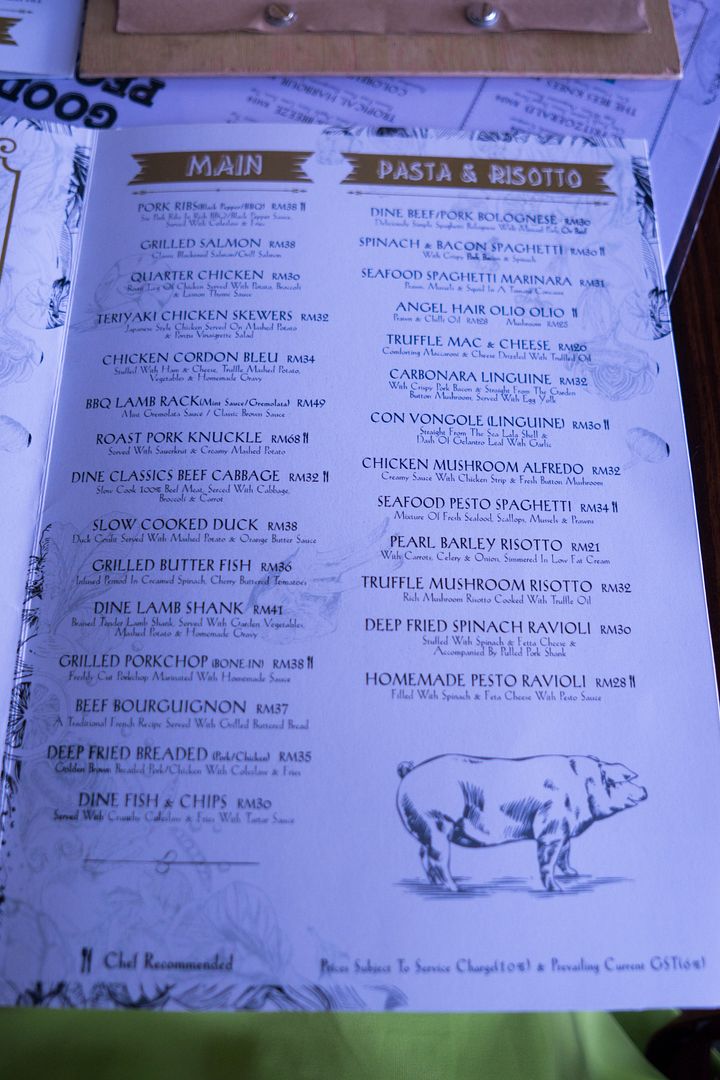 GOOD
PEO
COLORE
TROPICAL HARBOUR
BREEZE RM18
THE BEES KNEES
FRITZGERALD RM24
MAIN
PORK RIBS(Black Pepper/BBQ) RM38
Six Pork Ribs In Rich BBQ/Black Pepper Sauce,
Served With Coleslaw & Fries
GRILLED SALMON RM38
Classic Blackened Salmon/Grill Salmon
QUARTER CHICKEN RM30
Roast Leg Of Chicken Served With Potato, Broccoli
& Lemon Thyme Sauce
TERIYAKI CHICKEN SKEWERS RM32
Japanese Style Chicken Served On Mashed Potato
& Ponzu Vinaigrette Salad
CHICKEN CORDON BLEU RM34
Stuffed With Ham & Cheese, Truffle Mashed Potato,
Vegetables & Homemade Gravy
BBQ LAMB RACK(Mint Sauce/Gremolata) RM49
Mint Gremolata Sauce / Classic Brown Sauce
ROAST PORK KNUCKLE RM68
Served With Sauerkrut & Creamy Mashed Potato
DINE CLASSICS BEEF CABBAGE RM32
Slow Cook 100% Beef Meat, Served With Cabbage,
Broccoli & Carrot
SLOW COOKED DUCK RM38
Duck Confit Served With Mashed Potato & Orange Butter Sauce
GRILLED BUTTER FISH RM36
Infused Pernod In Creamed Spinach, Cherry Buttered Tomatoes
DINE LAMB SHANK RM41
Braised Tender Lamb Shank, Served With Garden Vegetables,
Mashed Potato & Homemade Gravy
GRILLED PORKCHOP (BONE IN) RM38
Freshly Cut Porkchop Marinated With Homemade Sauce
BEEF BOURGUIGNON RM37
A Traditional French Recipe Served With Grilled Buttered Bread
DEEP FRIED BREADED (Pork/Chicken) RM35
Golden Brown Breaded Pork/Chicken With Coleslaw & Fries
DINE FISH & CHIPS RM30
Served With Crunchy Coleslaw & Fries With Tartar Sauce
Chef Recommended
PASTA & RISOTTO
DINE BEEF/PORK BOLOGNESE RM30
Deliciously Simple Spaghetti Bolognese With Minced Pork Or Beef
SPINACH & BACON SPAGHETTI RM30
With Crispy Pork Bacon & Spinach
SEAFOOD SPAGHETTI MARINARA RM31
Prawn, Mussels & Squid In A Tomato Concasse
ANGEL HAIR OLIO OLIO
Prawn & Chilli Oil RM28 Mushroom RM25
TRUFFLE MAC & CHEESE RM26
Comforting Maccaroni & Cheese Drizzled With Truffled Oil
CARBONARA LINGUINE RM32
With Crispy Pork Bacon & Straight From The Garden
Button Mushroom, Served With Egg Yolk
CON VONGOLE (LINGUINE) RM30
Straight From The Sea Lala Shell &
Dash Of Gelantro Leaf With Garlic
CHICKEN MUSHROOM ALFREDO RM32
Creamy Sauce With Chicken Strip & Fresh Button Mushroom
SEAFOOD PESTO SPAGHETTI RM34
Mixture Of Fresh Seafood, Scallops, Mussels & Prawns
PEARL BARLEY RISOTTO RM21
With Carrots, Celery & Onion, Simmered In Low Fat Cream
TRUFFLE MUSHROOM RISOTTO RM32
Rich Mushroom Risotto Cooked With Truffle Oil
DEEP FRIED SPINACH RAVIOLI RM30
Stuffed With Spinach & Fetta Cheese &
Accompanied By Pulled Pork Shank
HOMEMADE PESTO RAVIOLI RM28
Filled With Spinach & Feta Cheese With Pesto Sauce
Prices Subject To Service Charge(10%) & Prevailing Current GST(6%)